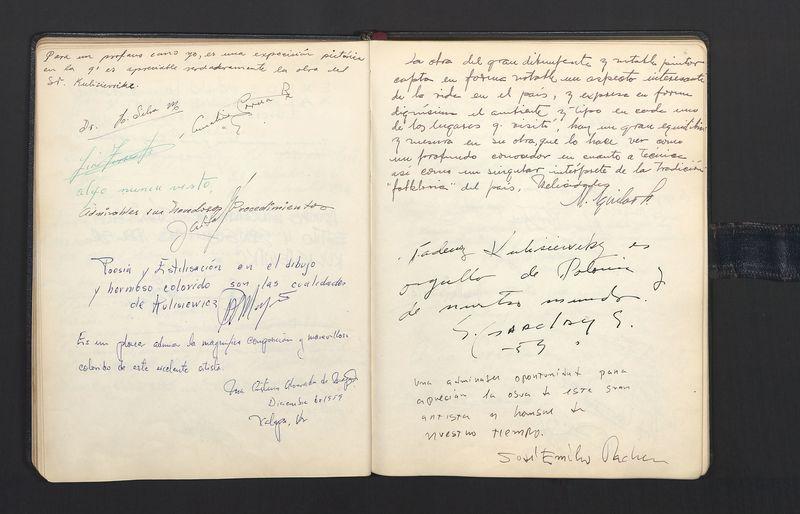 Para un profano como yo, es una exposición pictórica
en la q' es apreciable verdaderamente la obra del
Sr. Kulisievicz.
Dr. Jo. Silva M
algo nunca visto,
Admirables sus trazos y Procedimiento
Poesía y Estilización en el dibujo
y hermoso colorido son las cualidades
de Kulisiewicz
Es un placer admirar la magnífica composición y maravilloso
colorido de este excelente artista.
Diciembre 6 de 1959
Xalapa, Ver
La obra del gran dibujante y notable pintor
capta en forma notable un aspecto interesante
de la vida en el país, y expresa en forma
dignísima el ambiente y tipos en cada uno
de los lugares q. visitó, hay un gran equilibrio
y mesura en su obra, que lo hace ver como
un profundo conocedor en cuanto a técnica
así como un singular intérprete de la tradición
"folklórica" del país. Felicidades
Tadeuz Kulisiewiky es
orgullo de Polonia y
de nuestro mundo.
-59
Una admirable oportunidad para
apreciar la obra de este gran
artista y hombre de
nuestro tiempo.
José Emilio Pacheco